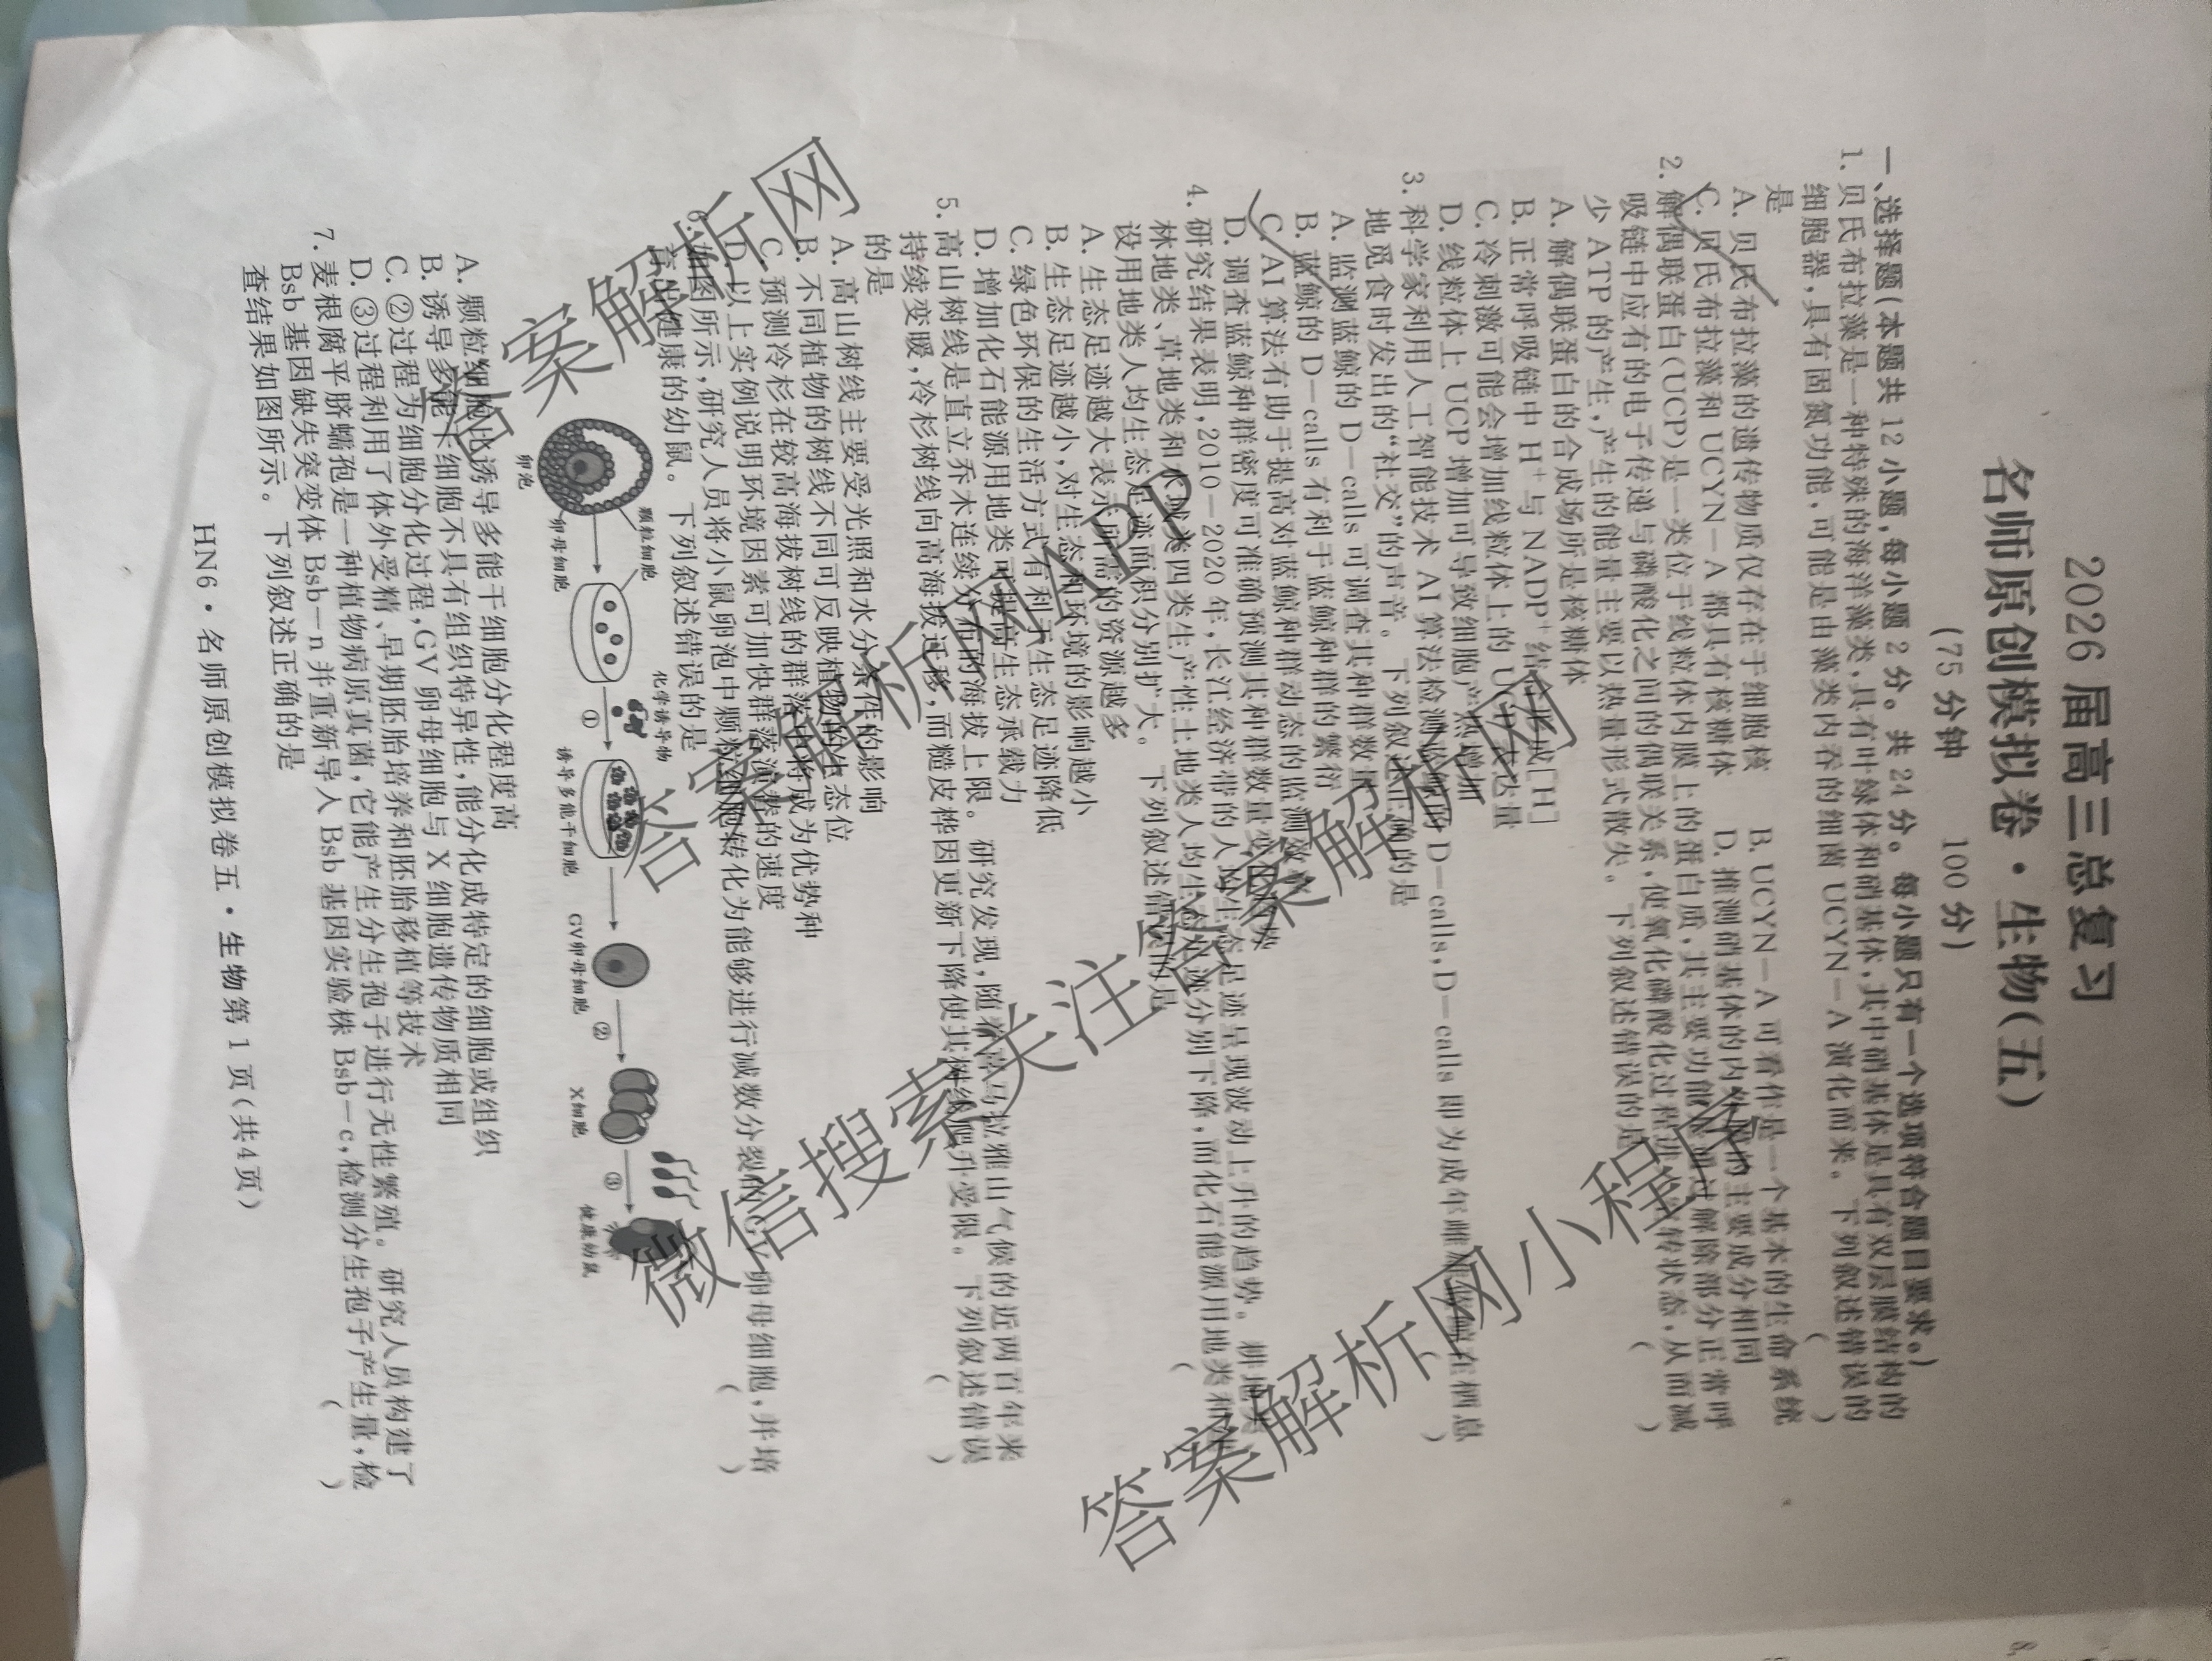 2026 届高三总复习
名师原创模拟卷·生物(五)
(75 分钟 100 分)
一、选择题(本题共 12 小题,每小题 2 分。共 24 分。每小题只有一个选项符合题目要求。)
1. 贝氏布拉藻是一种特殊的海洋藻类,具有叶绿体和硝基体,其中硝基体是具有双层膜结构的
细胞器,具有固氮功能,可能是由藻类内吞的细菌 UCYN-A 演化而来。下列叙述错误的
是 ( )
A. 贝氏布拉藻的遗传物质仅存在于细胞核 B. UCYN-A 可看作是一个基本的生命系统
C. 贝氏布拉藻和 UCYN-A 都具有核糖体 D. 推测硝基体的内外膜的主要成分相同
2. 解偶联蛋白(UCP)是一类位于线粒体内膜上的蛋白质,其主要功能是通过解除部分正常呼
吸链中应有的电子传递与磷酸化之间的偶联关系,使氧化磷酸化过程转状态,从而减
少 ATP 的产生,产生的能量主要以热量形式散失。下列叙述错误的是 ( )
A. 解偶联蛋白的合成场所是核糖体
B. 正常呼吸链中 H⁺与 NADP⁺结合形成[H]
C. 冷刺激可能会增加线粒体上的 UCP 表达量
D. 线粒体上 UCP 增加可导致细胞产热增加
3. 科学家利用人工智能技术 AI 算法检测蓝鲸的 D-calls,D-calls 即为成年雌雄蓝鲸在栖息
地觅食时发出的“社交”的声音。下列叙述正确的是 ( )
A. 监测蓝鲸的 D-calls 可调查其种群数量
B. 蓝鲸的 D-calls 有利于蓝鲸种群的繁衍
C. AI 算法有助于提高对蓝鲸种群动态的监测效率
D. 调查蓝鲸种群密度可准确预测其种群数量变化趋势
4. 研究结果表明,2010-2020 年,长江经济带的人均生态足迹呈现波动上升的趋势。耕地类、
林地类、草地类和水域类四类生产性土地类人均生态足迹分别下降,而化石能源用地类和建
设用地类人均生态足迹面积分别扩大。下列叙述错误的是 ( )
A. 生态足迹越大表示所需的资源越多
B. 生态足迹越小,对生态和环境的影响越小
C. 绿色环保的生活方式有利于生态足迹降低
D. 增加化石能源用地类可提高生态承载力
5. 高山树线是直立乔木连续分布的海拔上限。研究发现,随着喜马拉雅山气候的近两百年来
持续变暖,冷杉树线向高海拔迁移,而糙皮桦因更新下降使其树线爬升受限。下列叙述错误
的是 ( )
A. 高山树线主要受光照和水分条件的影响
B. 不同植物的树线不同可反映植物的生态位
C. 预测冷杉在较高海拔树线的群落中将成为优势种
D. 以上实例说明环境因素可加快群落演替的速度
6. 如图所示,研究人员将小鼠卵泡中颗粒细胞转化为能够进行减数分裂的 GV 卵母细胞,并培
育出健康的幼鼠。下列叙述错误的是 ( )
卵泡
卵母细胞
颗粒细胞
化学诱导物
①
诱导多能干细胞
GV卵母细胞
②
X细胞
③
健康幼鼠
A. 颗粒细胞比诱导多能干细胞分化程度高
B. 诱导多能干细胞不具有组织特异性,能分化成特定的细胞或组织
C. ②过程为细胞分化过程,GV 卵母细胞与 X 细胞遗传物质相同
D. ③过程利用了体外受精、早期胚胎培养和胚胎移植等技术
7. 麦根腐平脐蠕孢是一种植物病原真菌,它能产生分生孢子进行无性繁殖。研究人员构建了
Bsb 基因缺失突变体 Bsb-n 并重新导入 Bsb 基因实验株 Bsb-c,检测分生孢子产生量,检
查结果如图所示。下列叙述正确的是 ( )
HN6·名师原创模拟卷五·生物第 1 页(共 4 页)
8.
答案解析网
答案解析网APP
微信搜索关注答案解析网
答案解析网小程序